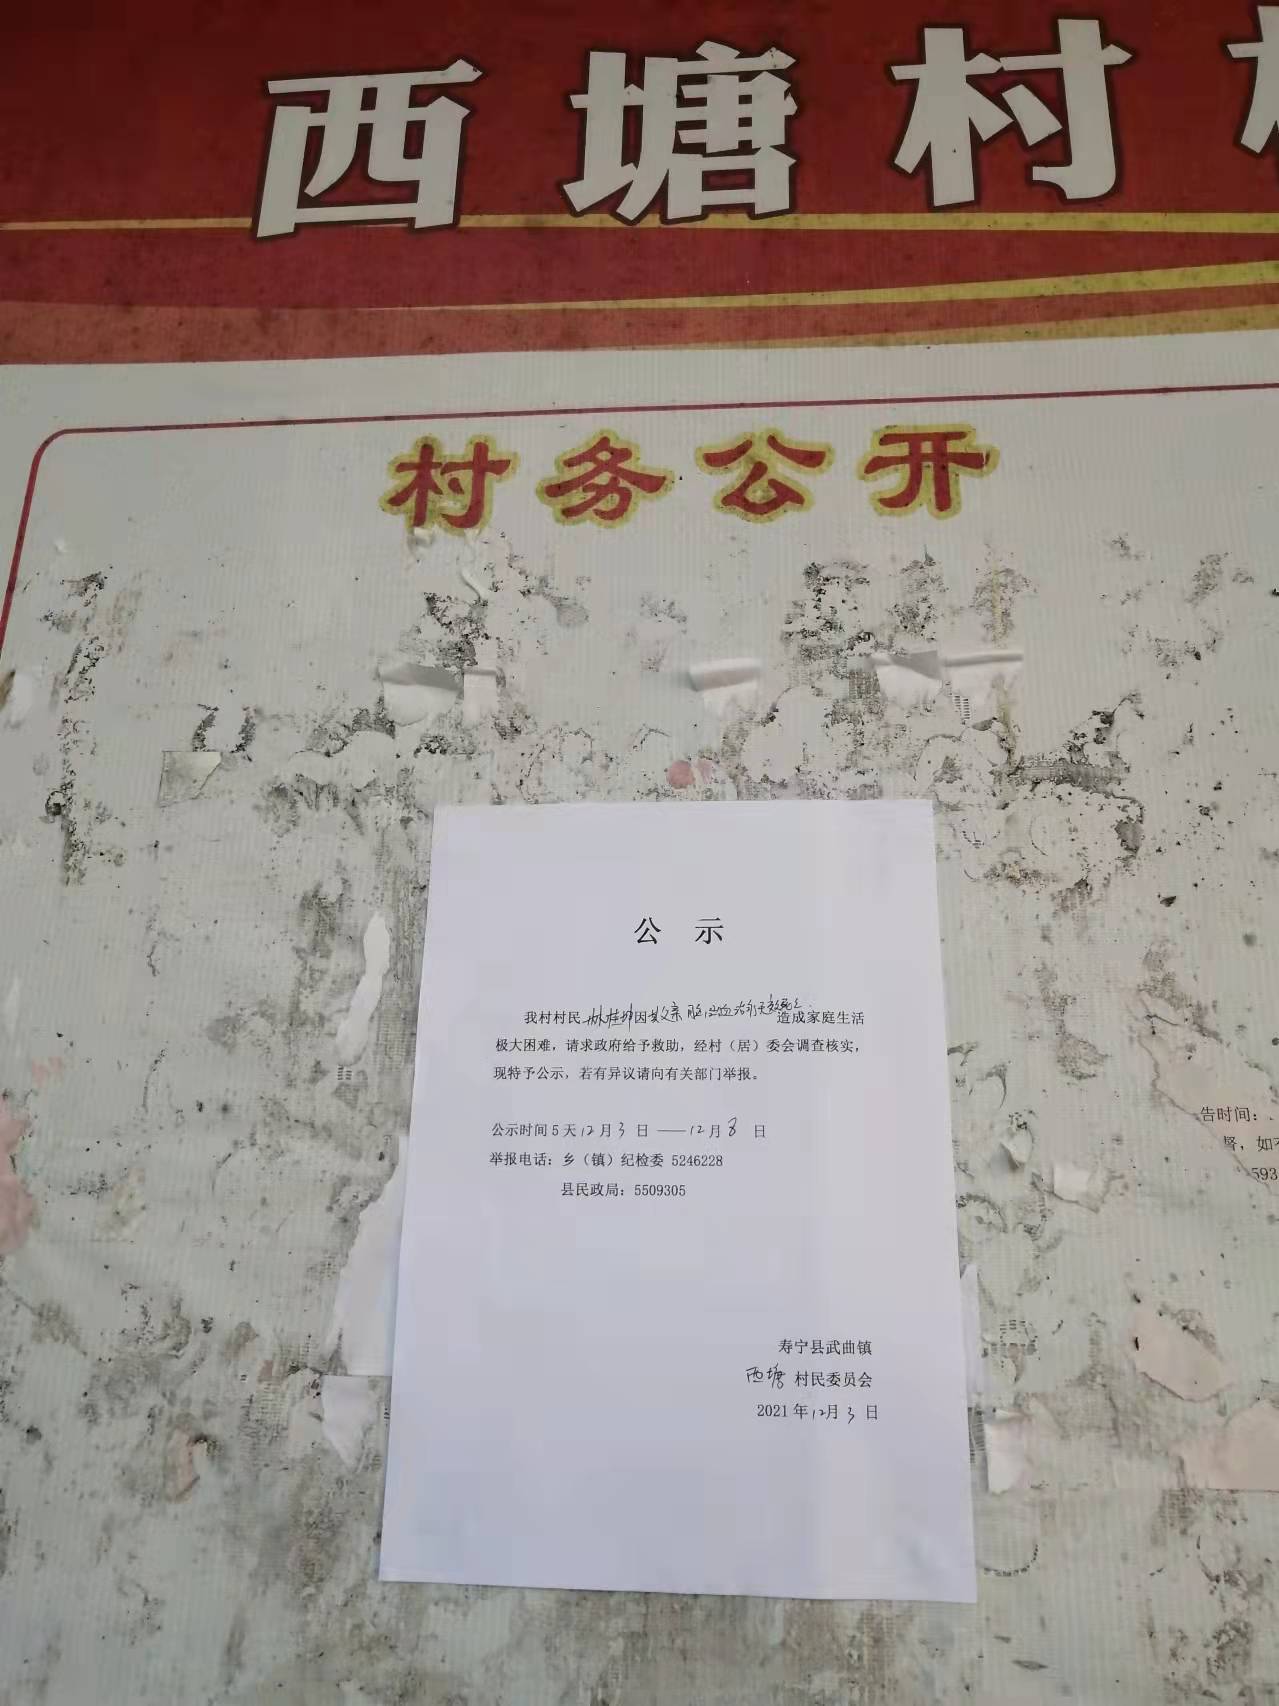 西塘村
村务公开
公 示
我村村民林桂坤因其父亲脑出血治疗无效死亡造成家庭生活
极大困难，请求政府给予救助，经村（居）委会调查核实，
现特予公示，若有异议请向有关部门举报。
公示时间5天12月3日——12月8日
举报电话：乡（镇）纪检委 5246228
县民政局：5509305
寿宁县武曲镇
西塘村民委员会
2021年12月3日
告时间：
督，如
593